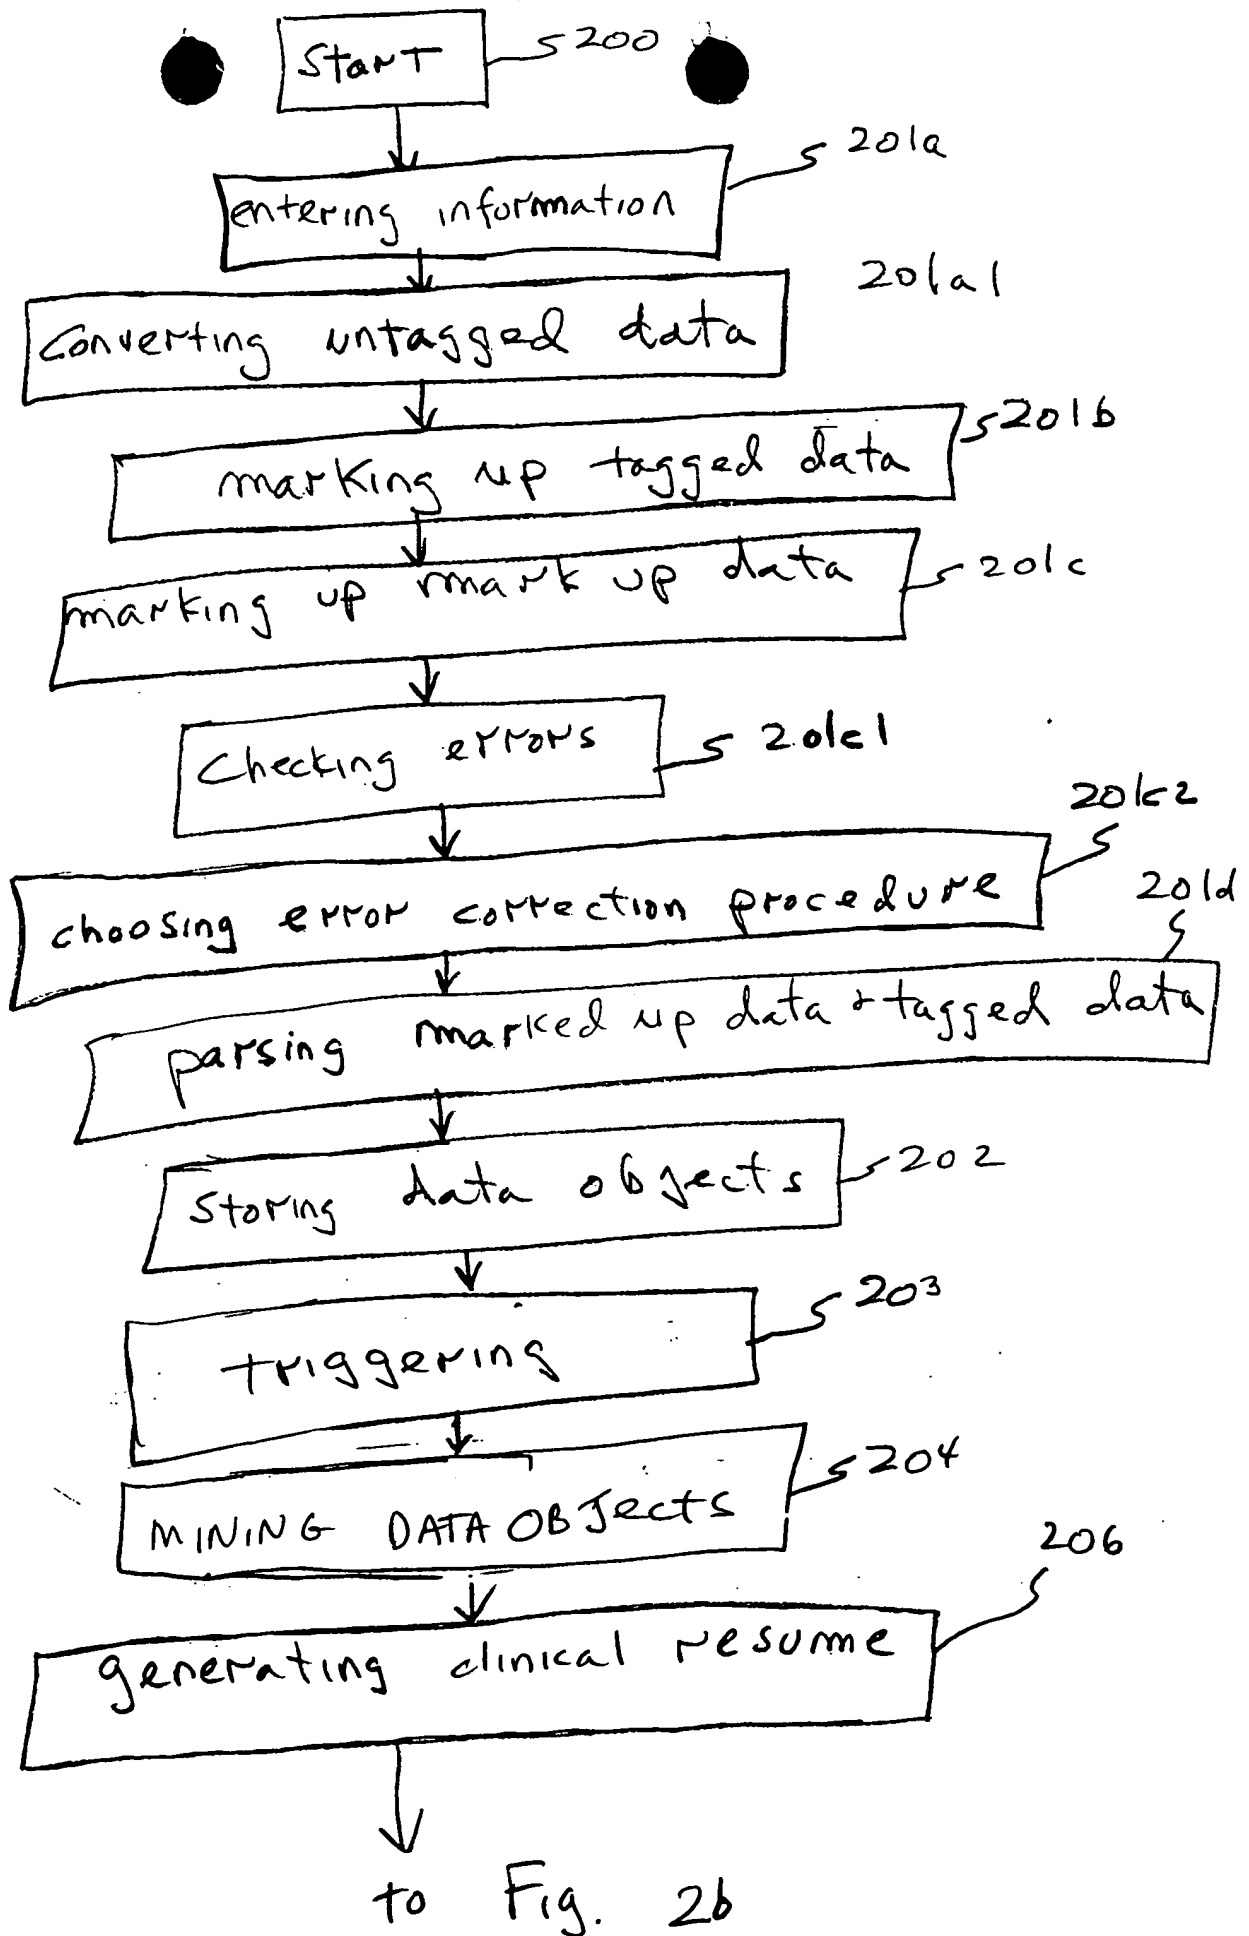 Start 200
entering information 201a
201a1
Converting untagged data
201b
marking up tagged data
marking up mark up data 201c
Checking errors 201c1
201c2
choosing error correction procedure
201d
parsing marked up data + tagged data
Storing data objects 202
203
triggering
204
MINING DATA OBJects
206
generating clinical resume
to Fig. 2b